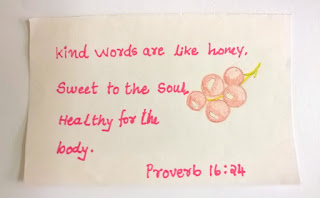 Kind words are like honey.
Sweet to the Soul
Healthy for the
body.
Proverb 16:24